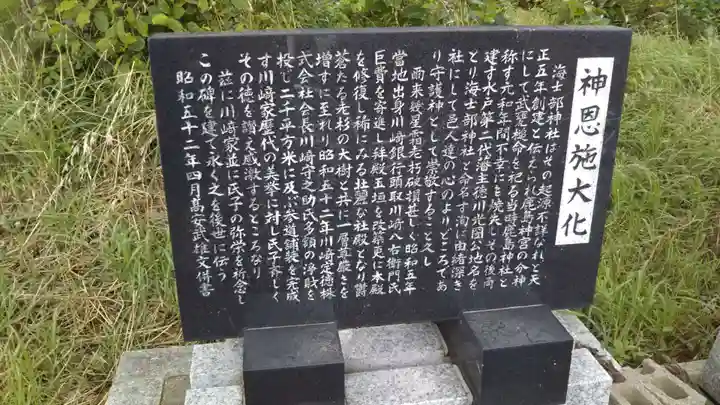 神恩施大化
海士部神社はその起源不詳なれど天
正五年創建と伝えられ鹿島神宮の分神
にして武甕槌命を祀る当時鹿島神社と
称す元和年間不幸にも焼失しその後再
建す水戸第二代藩主徳川光圀公地名を
とり海士部神社と命名す洵に由緒深き
社にして邑人達の心のよりどころであ
り守護神として崇敬することえし
而来幾星霜老朽破損甚しく昭和五年
當地出身川崎銀行頭取川崎八右衛門氏
巨費を寄進し拝殿玉垣を改築更に本殿
を修復し稀にみる壮麗な社殿となり欝
蒼たる老杉の大樹と共に一層尊厳さを
増すに至れり昭和五十二年川崎定徳株
式会社会長川崎守之助氏多額の浄財を
投じ二千平方米に及ぶ参道舗装を完成
す川崎家歴代の美挙に対し氏子斉しく
その徳を讃え感激するところなり
茲に川崎家並に氏子の弥栄を祈念し
この碑を建て永く之を後世に伝う
昭和五十二年四月高安武雄文併書